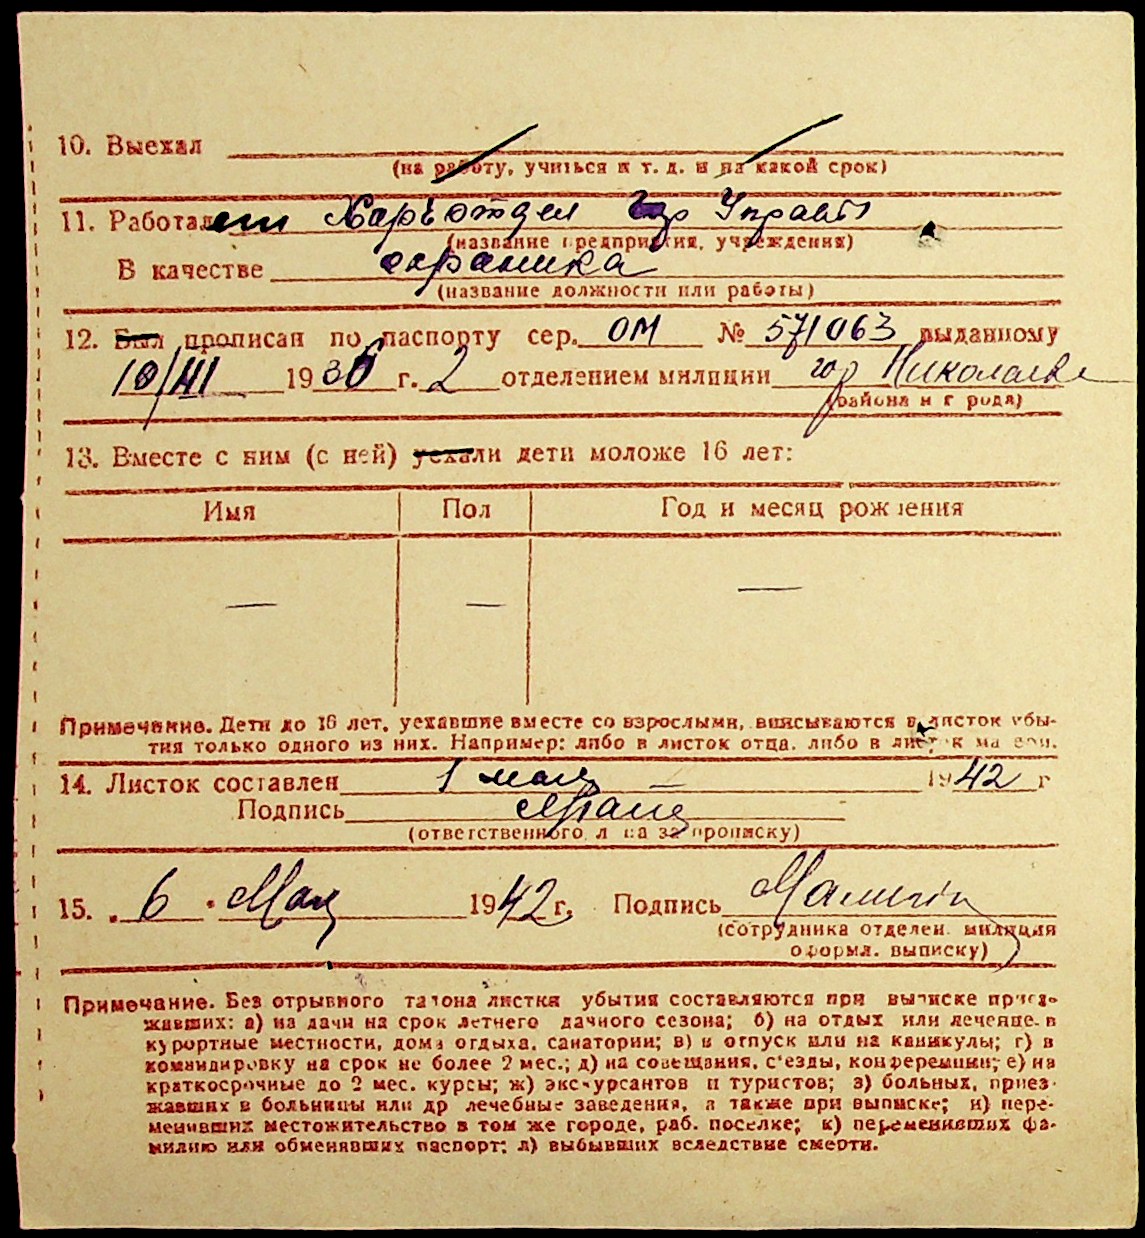 10. Выехал
(на работу, учиться и т. д. и на какой срок)
11. Работает Харьотдел Гор Управы
(название предприятия, учреждения)
В качестве охраника
(название должности или работы)
12. Был прописан по паспорту сер. ОМ № 571063 выданному
10/III 1936 г. 2 отделением милиции гор Николаева
(района и города)
13. Вместе с ним (с ней) уехали дети моложе 16 лет:
Имя Пол Год и месяц рождения
— — —
Примечание. Дети до 16 лет, уехавшие вместе со взрослыми, вписываются в листок убы-
тия только одного из них. Например: либо в листок отца, либо в листок матери.
14. Листок составлен 1 мая 1942 г
Подпись
(ответственного лица за прописку)
15. 6 Мая 1942 г. Подпись
(сотрудника отделен. милиции
оформл. выписку)
Примечание. Без отрывного талона листки убытия составляются при выписке приез-
жавших: а) на дачи на срок летнего дачного сезона; б) на отдых или лечение в
курортные местности, дома отдыха, санатории; в) в отпуск или на каникулы; г) в
командировку на срок не более 2 мес.; д) на совещания, с'езды, конференции; е) на
краткосрочные до 2 мес. курсы; ж) экскурсантов и туристов; з) больных, приез-
жавших в больницы или др лечебные заведения, а также при выписке; и) пере-
менивших местожительство в том же городе, раб. поселке; к) переменивших фа-
милию или обменявших паспорт; л) выбывших вследствие смерти.